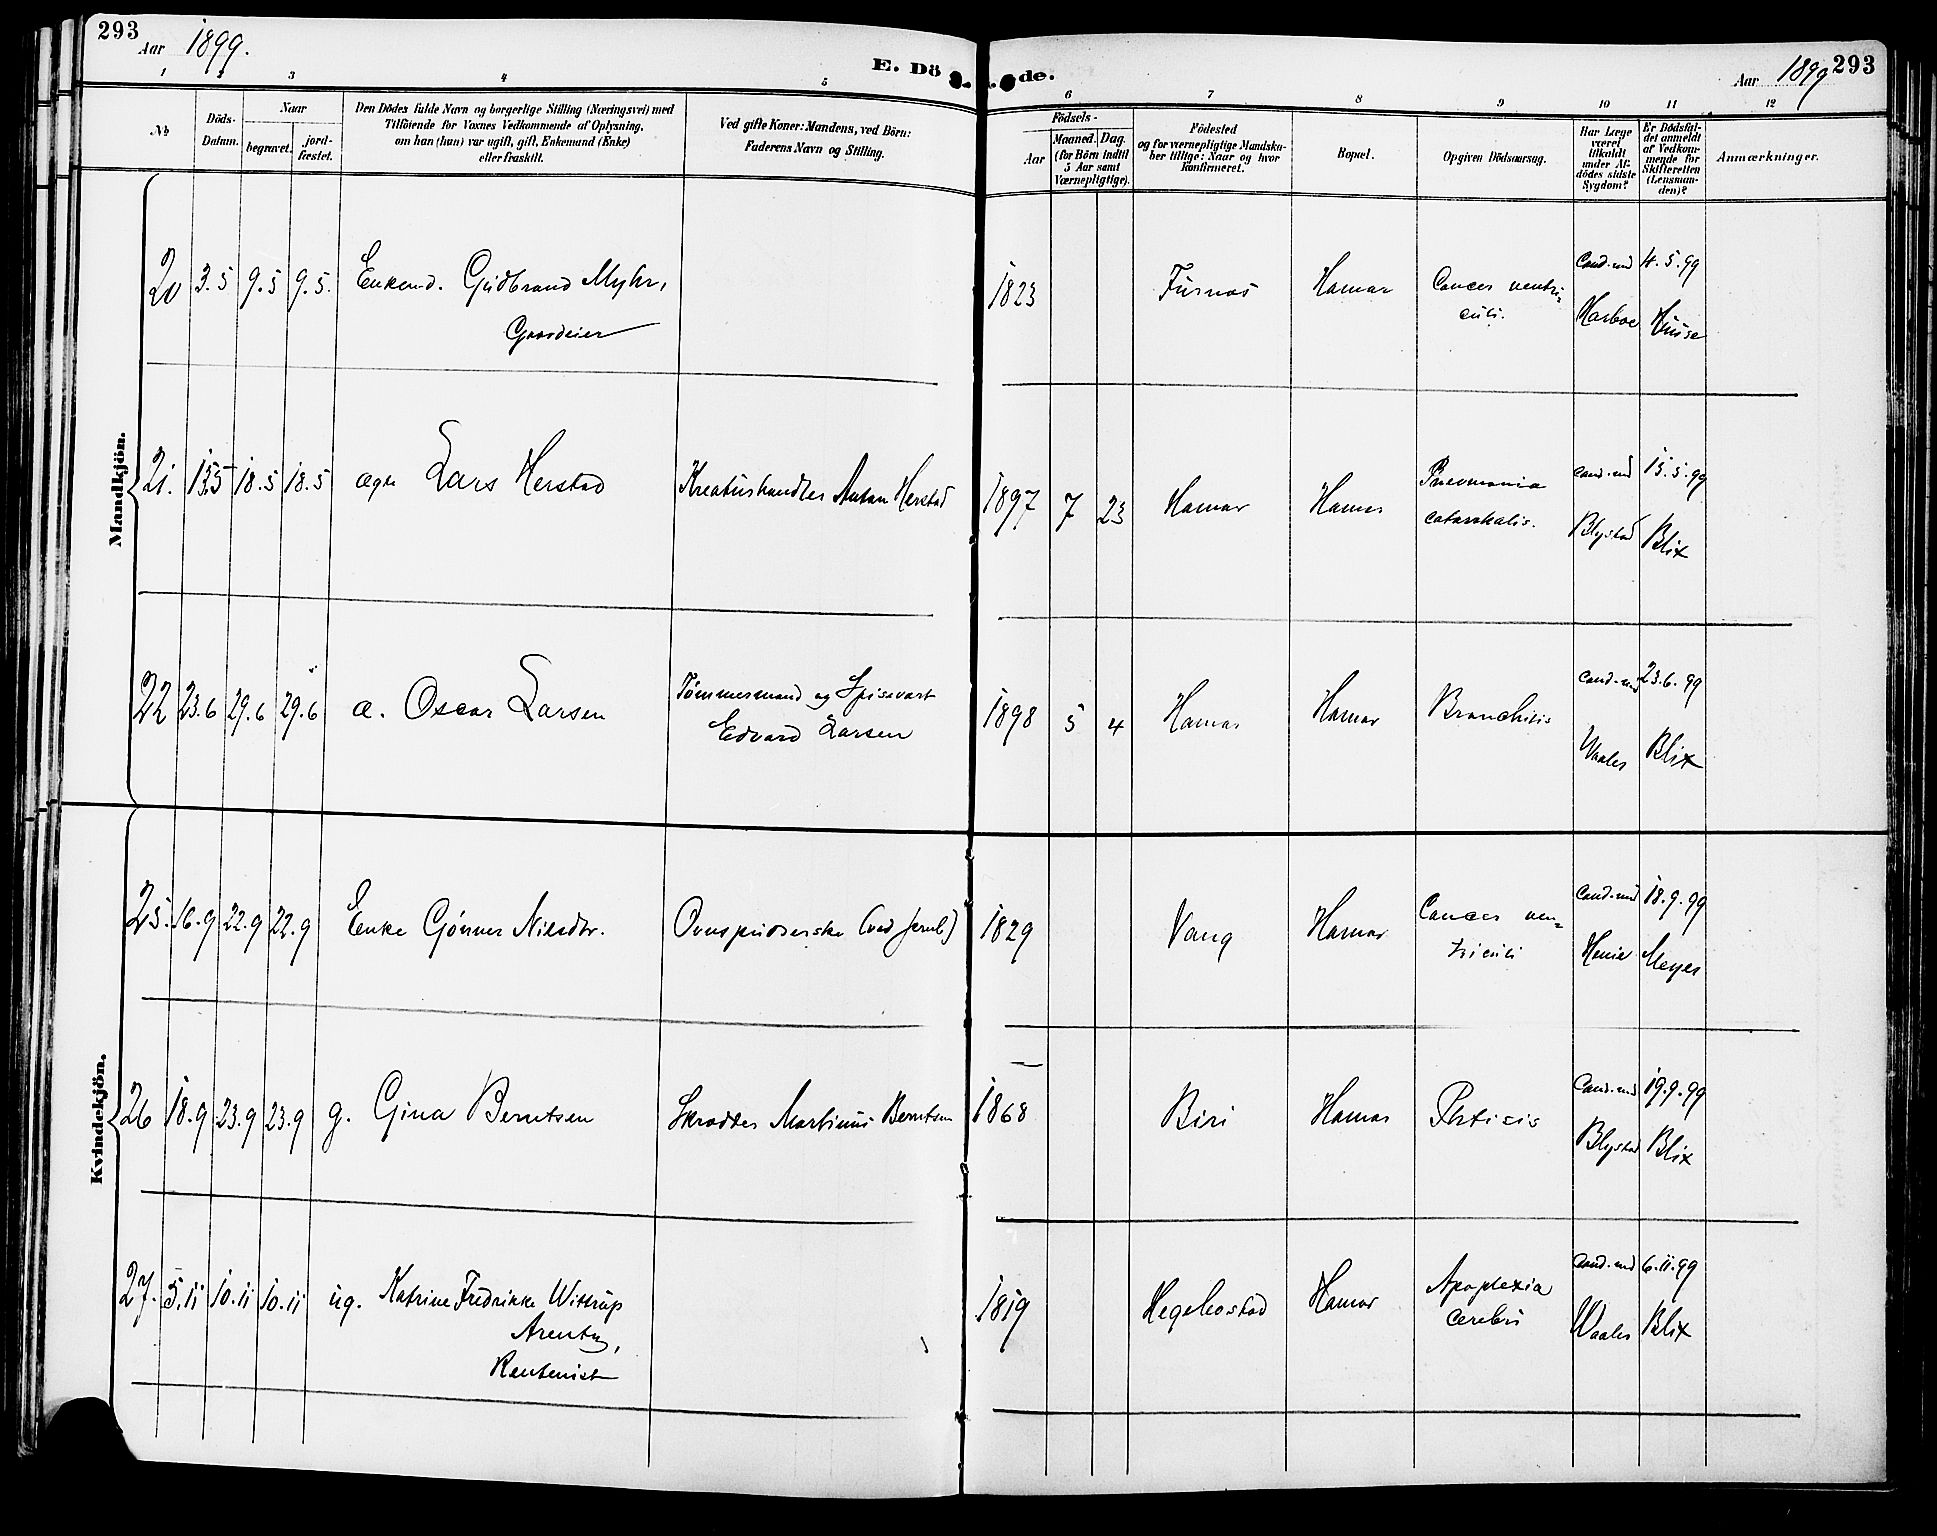 293
Aar 1899.
E. Dö
de.
Aar 1899
293
1 2 3 4 5 6 7 8 9 10 11 12
No
Döds-
Datum.
Naar
begravet.
jord-
fæstet.
Den Dödes fulde Navn og borgerlige Stilling (Næringsvei) med
Tilföiende for Voxnes Vedkommende af Oplysning,
om han (hun) var ugift, gift, Enkemand (Enke)
eller fraskilt.
Ved gifte Koner: Mandens, ved Börn:
Faderens Navn og Stilling.
Födsels-
Aar
Maaned. Dag.
(for Börn indtil
5 Aar samt
Værnepligtige).
Födested
og for værnepligtige Mandska-
ber tillige: Naar og hvor
konfirmeret.
Bopæl.
Opgiven Dödsaarsag.
Har Læge
været
tilkaldt
under Af-
dödes sidste
Sygdom?
Er Dödsfal-
det anmeldt
af Vedkom-
mende for
Skifteretten
(Lensman-
den)?
Anmærkninger.
Mandkjön.
20 3.5 9.5 9.5. Enkemd. Gudbrand Myhr,
Gaardeier
1823 Furnæs Hamar Cancer ventri-
culi.
Cand.med
Harboe
4.5.99
Huuse
21. 15.5 18.5 18.5 ægte Lars Herstad Kreaturhandler Anton Herstad
1897 7 23 Hamar Hamar Pneumonia
catarrhalis.
cand.med
Blystad
15.5.99
Blix
22 23.6 29.6 29.6 æ. Oscar Larsen Tømmermand og Spisevært
Edvard Larsen
1898 5 4 Hamar Hamar Bronchitis
cand.med
Waaler
23.6.99
Blix
Kvindekjön.
25. 16.9 22.9 22.9 Enke Gjønner Nilsdtr. Ovnspudserske (ved Jernb)
1829 Vang Hamar Cancer ven-
triculi
cand.med
Henie
18.9.99
Meyer
26 18.9 23.9 23.9 g. Gina Berntsen Skrædder Martinus Berntsen
1868 Biri Hamar Phtisis
Cand.med
Blystad
19.9.99
Blix
27. 5.11 10.11 10.11 ug. Katrine Fredrikke Wittrup
Arentz,
Rentenist
1819 Hegebostad Hamar Apoplexia
cerebri
cand.med
Waaler
6.11.99
Blix